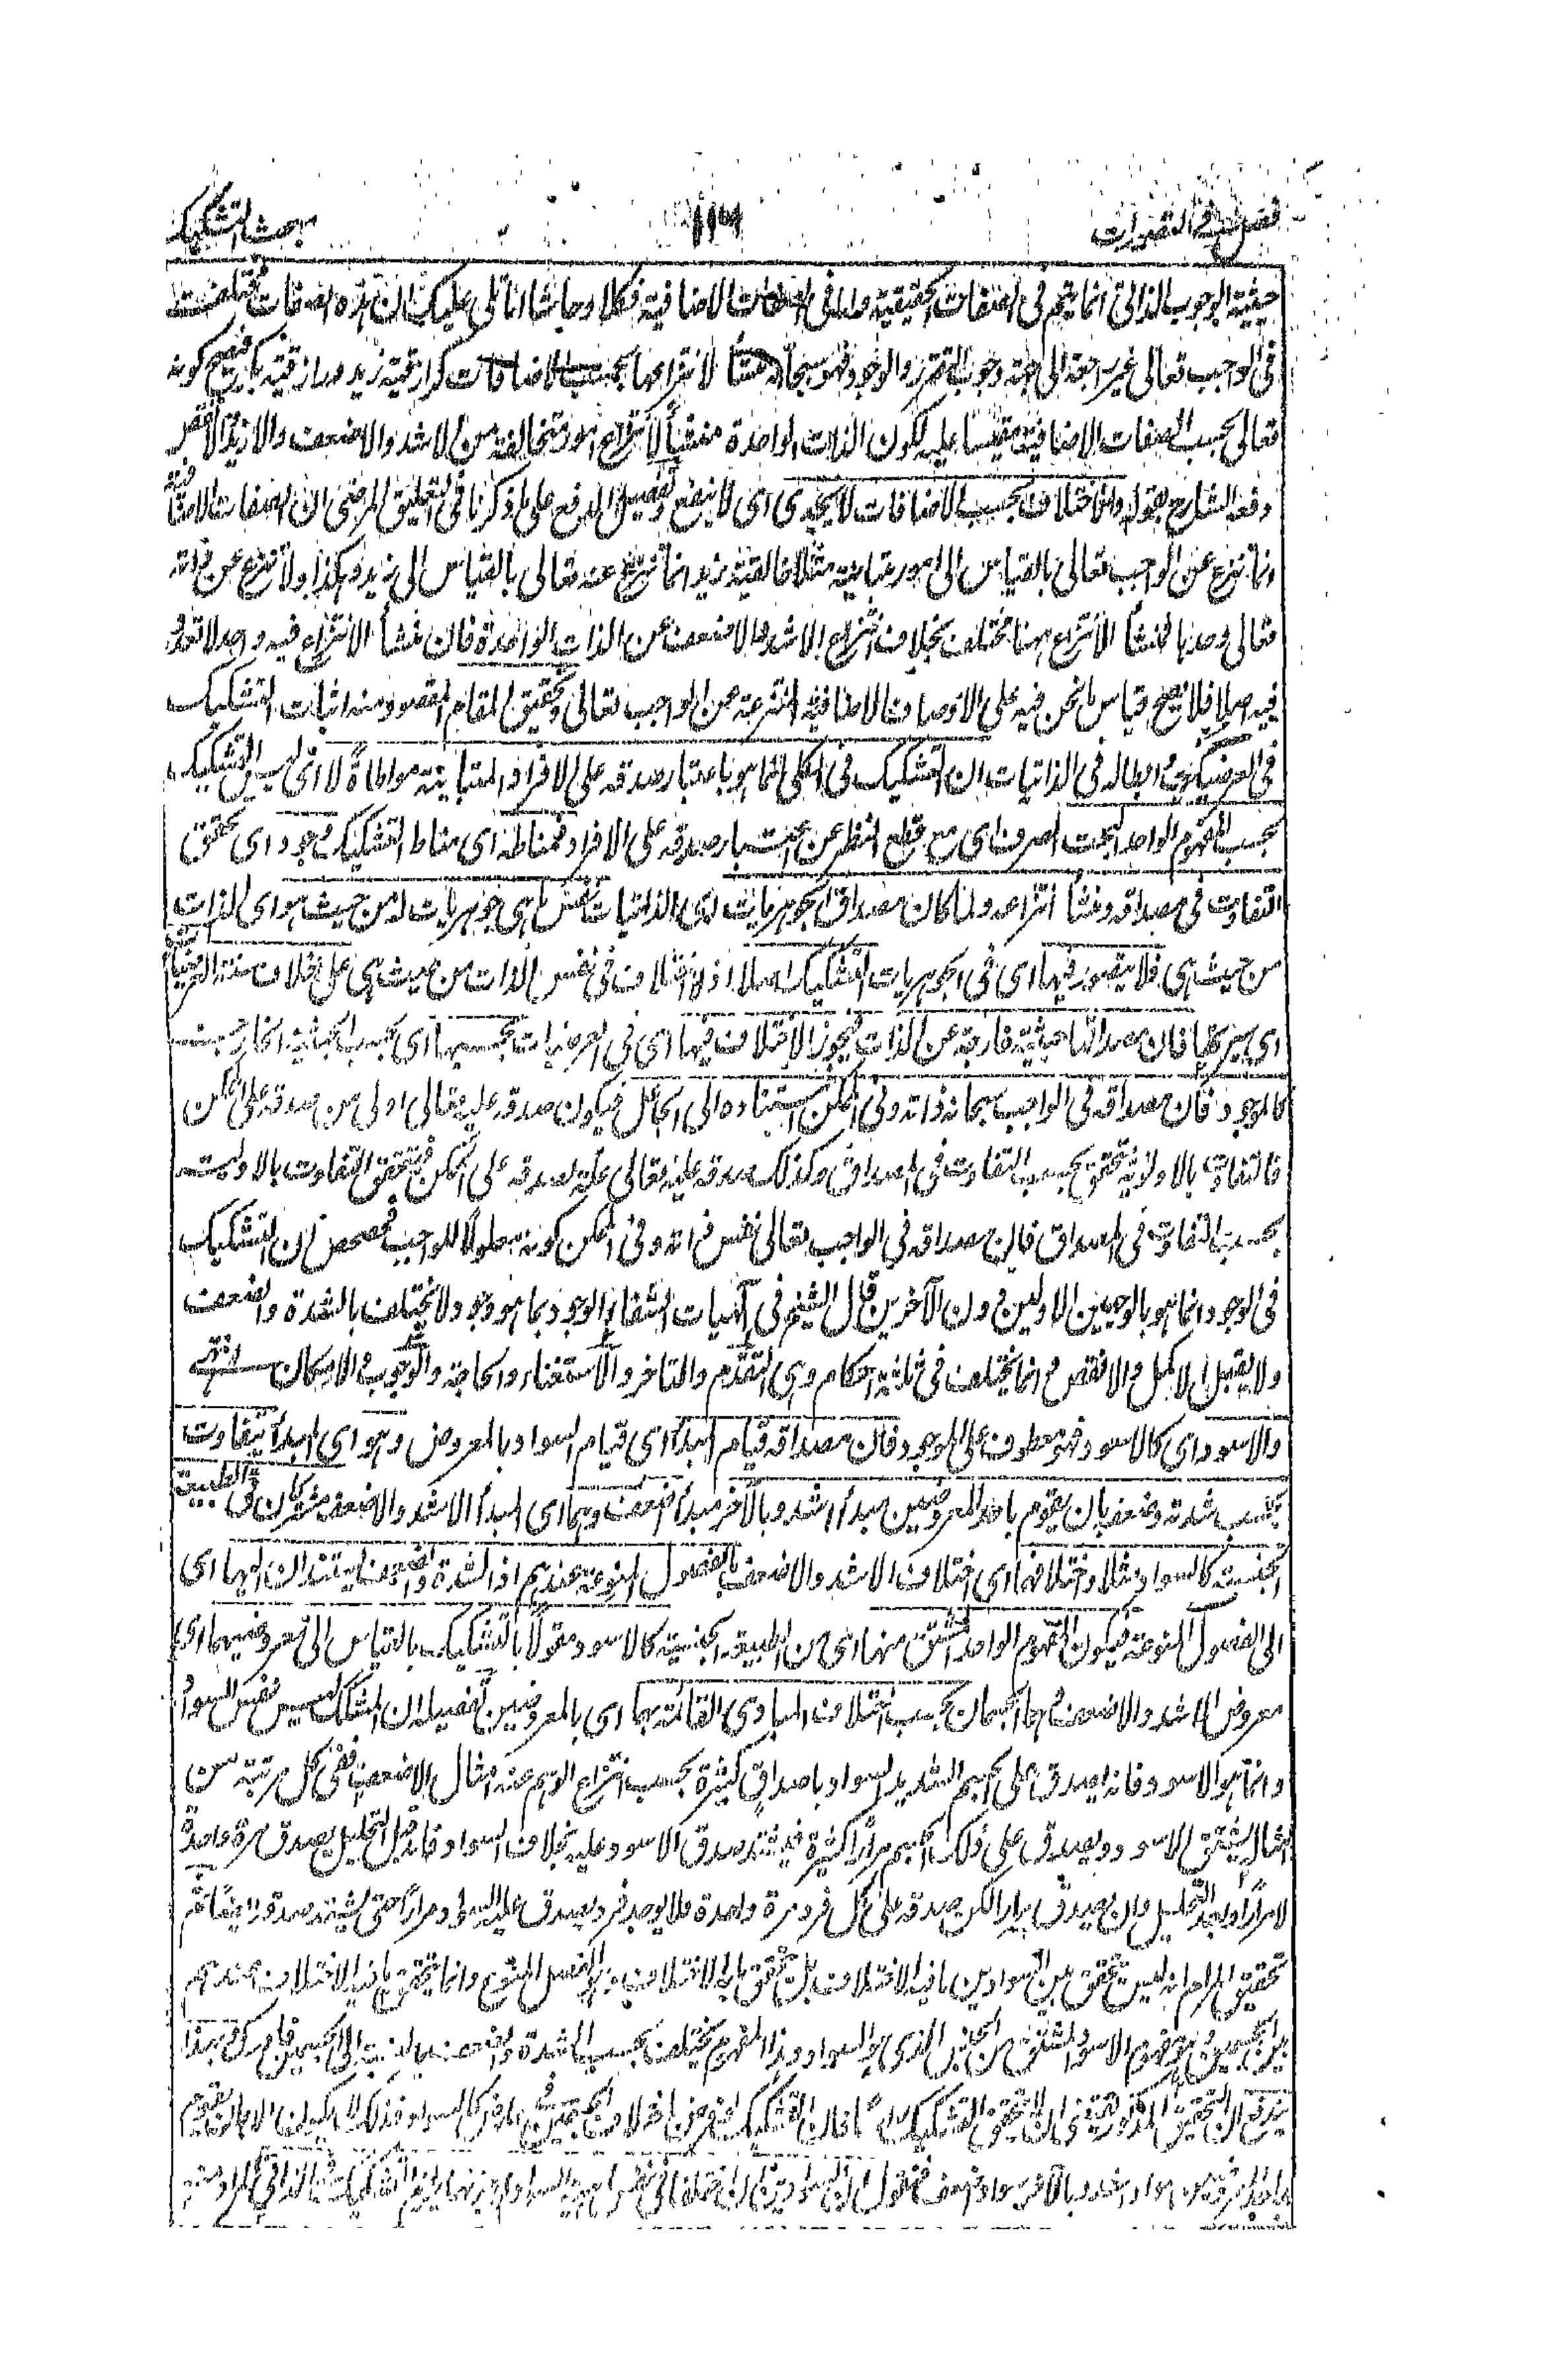 فصل في التصورات
مبحث التشكيك
حيثية الوجوب الذاتي انما يتم في الصفات الحقيقية واما في الصفات الاضافية فكلا وحاشا انا نتلى عليك ان هذه الصفات
في الواجب تعالى غير راجعة الى جهة وجوب التقرر والوجود فهو سبحانه منشأ لانتزاعها بحسب الاضافات كرازقية زيد ورازقية بكر فيصح كونه
تعالى بحسب الصفات الاضافية مقيسا عليه لكون الذات الواحدة منشأ لانتزاع امور متخالفة من الاشد والاضعف والازيد والانقص
دفعه الشارح بقوله والاختلاف بحسب الاضافات لا يجدى اى لا ينفع وتفصيل الدفع على ما ذكرنا في التعليق المرضى ان الصفات الاضافية
انما تنتزع عن الواجب تعالى بالقياس الى امور متباينة مثلا خالقية زيد انما تنتزع عنه تعالى بالقياس الى زيد وهكذا ولا تنتزع عن ذاته
تعالى وحدها فمنشأ الانتزاع ههنا مختلف بخلاف انتزاع الاشد والاضعف عن الذات الواحدة فان منشأ الانتزاع فيه واحد لا تعدد
فيه اصلا فلا يصح قياس ما نحن فيه على الاوصاف الاضافية المنتزعة عن الواجب تعالى وتحقيق المقام المقصود منه اثبات التشكيك
في العرضيات وابطاله في الذاتيات ان التشكيك في الكلى انما هو باعتبار صدقه على الافراد المتباينة مواطاة لا اى ليس التشكيك
بحسب المفهوم الواحد البحت الصرف اى مع قطع النظر عن اعتبار صدقه على الافراد فمناطه اى مناط التشكيك وجود اى تحقق
التفاوت في مصداقه ومنشأ انتزاعه ولما كان مصداق الجوهريات اى الذاتيات نفس ما هى جوهريات له من حيث هو اى الذات
من حيث هى فلا يتصور فيها اى في الجوهريات التشكيك اصلا اذ لا اختلاف في نفس الذات من حيث هى على خلاف سنة العرضيات
اى سيرتها فان مصداقها حيثية خارجة عن الذات فيجوز الاختلاف فيها اى في العرضيات بحسبها اى بحسب الحيثية الخارجية
كالموجود فان مصداقه في الواجب سبحانه ذاته وفى الممكن استناده الى الجاعل فيكون صدقه عليه تعالى اولى من صدقه على الممكن
فالتفاوت بالاولوية تحقق بحسب التفاوت في المصداق وكذلك صدقه عليه تعالى علة لصدقه على الممكن فتحقق التفاوت بالاولية
بحسب التفاوت في المصداق فان مصداقه في الواجب تعالى نفس ذاته وفى الممكن كونه معلولا للواجب فحصحص ان التشكيك
في الوجود انما هو بالوجهين الاولين دون الآخرين قال الشيخ في آلهيات الشفاء الوجود بما هو وجود لا يختلف بالشدة والضعف
ولا يقبل الاكمل والانقص وانما يختلف في ثلثة احكام وهى التقدم والتاخر والاستغناء والحاجة والوجوب والامكان انتهى
والاسود اى كالاسود فهو معطوف على الموجود فان مصداقه قيام المبدأ اى قيام السواد بالمعروض وهو اى المبدأ يتفاوت
بحسب شدته وضعفه بان يقوم باحد المعروضين مبدأ اشد وبالآخر مبدأ اضعف وهما اى المبدأ الاشد والاضعف مشتركان في الطبيعة
الجنسية كالسواد مثلا واختلافهما اى اختلاف الاشد والاضعف بالفصول المنوعة عندهم اذ الشدة والضعف يستندان اليها اى
الى الفصول المنوعة فيكون المفهوم الواحد المشتق منهما اى من الطبيعة الجنسية كالاسود مقولا بالتشكيك بالقياس الى معروضيهما اى
معروض الاشد والاضعف وهما الجسمان بحسب اختلاف المبادى القائمة بهما اى بالمعروضين تفصيله ان المشكك ليس نفس السواد
وانما هو الاسود فانه يصدق على الجسم الشديد السواد باصداق كثيرة بحسب انتزاع الوهم عنه امثال الاضعف ففى كل مرتبة من
امثاله يشتق الاسود ويصدق على ذلك الجسم مرارا كثيرة فيشتد صدق الاسود عليه بخلاف السواد فانه قبل التحليل يصدق مرة واحدة
لا مرارا وبعد التحليل وان يصدق مرارا لكن صدقه على كل فرد مرة واحدة فلا يوجد فرد يصدق عليه السواد مرارا حتى يشتد صدقه
تحقيق المرام انه ليس تحقق بين السوادين ما فيه الاختلاف بل تحقق ما به الاختلاف وهو الفصل المنوع وانما يتحقق ما فيه الاختلاف عندهم
بين الجسمين وهو مفهوم الاسود المشتق من الجنس الذى هو السواد وهذا المفهوم يختلف بحسب الشدة والضعف بالنسبة الى الجسمين